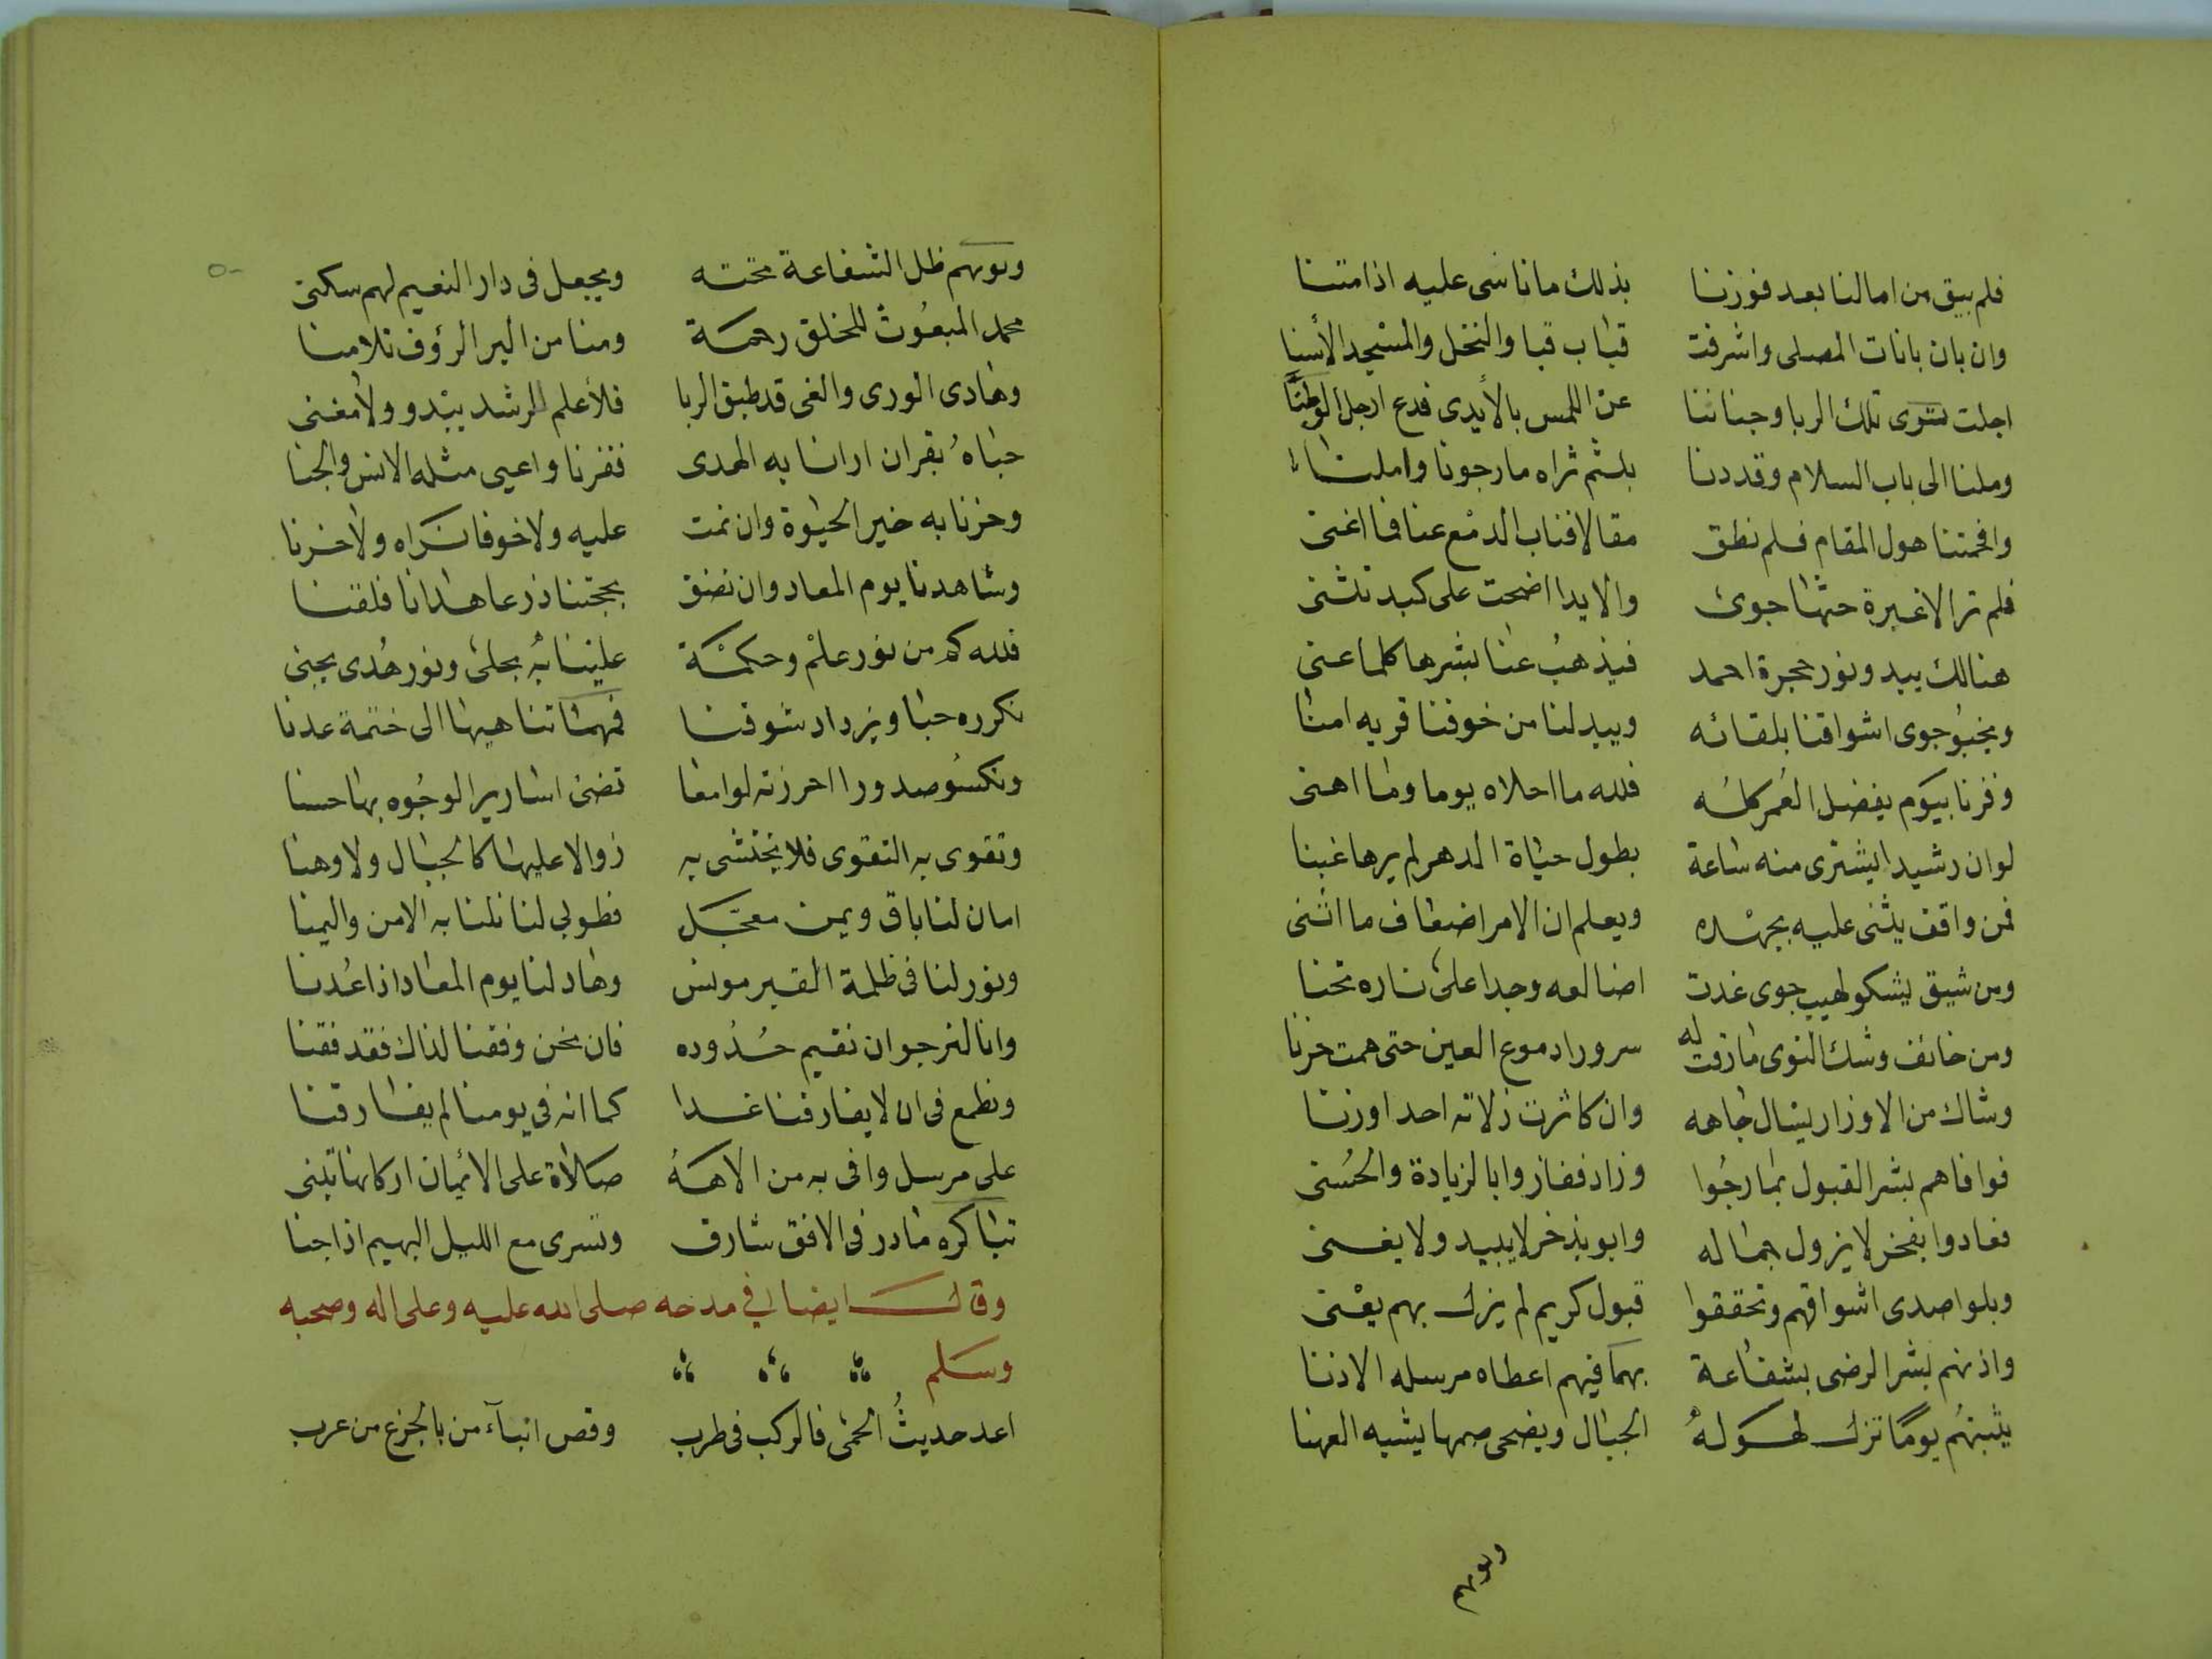 فلم يبق من امالنا بعد فوزنا بذلك ما ناسى عليه اذا متنا
وان بان بانات المصلى واشرفت قباب قبا والنخل والمسجد الأسنا
اجلت ثرى تلك الربا وجنابنا عن اللمس بالأيدى فدع ارجل الوطنا
وملنا الى باب السلام وقد دنا بلثم ثراه ما رجونا واملنا
وافحمتنا هول المقام فلم نطق مقالا فناب الدمع عنا فما اغنى
فلم تر الا غبرة حثها جوى والا يدا اضحت على كبد تثنى
هنالك يبدو نور حجرة احمد فيذهب عنا بشرها كلما عنى
ويخبو جوى اشواقنا بلقائه ويبدلنا من خوفنا قربه امنا
وفزنا بيوم يفضل العمر كله فلله ما احلاه يوما وما اهنى
لو ان رشيدا يشترى منه ساعة بطول حياة الدهر لم يرها غبنا
فمن واقف يثنى عليه بجهده ويعلم ان الامر اضعاف ما اثنى
ومن شيق يشكو لهيب جوى غدت اضالعه وجدا على ناره تحنا
ومن خائف وشك النوى ما رقت له سرورا دموع العين حتى همت حزنا
وشاك من الاوزار يسال جاهه وان كاثرت زلاته احدا وزنا
فوافاهم بشر القبول بما رجوا وزاد ففازوا بالزيادة والحسنى
فعادوا بفخر لا يزول جماله وابو بذخر لا يبيد ولا يفنى
وبلوا صدى اشواقهم وتحققوا قبول كريم لم يزل بهم يعنى
واذنهم بشر الرضى بشفاعة بهما فيهم اعطاه مرسله الاذنا
يثبتهم يوما تزل لهوله الجبال ويضحى صمها يشبه العهنا
ويويهم
ويويهم ظل الشفاعة تحته ويجعل فى دار النعيم لهم سكنى
محمد المبعوث للخلق رحمة ومنا من البر الرؤف تلا منا
وهادى الورى والغى قد طبق الربا فلا علم للرشد يبدو ولا مغنى
حباه بقران ارانا به الهدى ففزنا واعيى مثله الانس والجنا
وحزنا به خير الحيوة وان نمت عليه ولا خوفا نراه ولا حزنا
وشاهدنا يوم المعاد وان نضق بحجتنا ذرعا هدانا فلقنا
فلله كم من نور علم وحكمة علينا به يجلى ونور هدى يجنى
نكرره حبا ويزداد شوقنا فمهما تناهينا الى ختمة عدنا
ونكسو صدورا احرزته لوامعا تضئ اسارير الوجوه بها حسنا
وتقوى به التقوى فلا يختشى به زوالا عليها كالجبال ولا وهنا
امان لنا باق ويمن معجل فطوبى لنا نلنا به الامن واليمنا
ونور لنا فى ظلمة القبر مونس وهاد لنا يوم المعاد اذا عدنا
وانا لنرجو ان نقيم حدوده فان نحن وفقنا لذاك فقد فقنا
ونطمع فى ان لا يفارقنا غدا كما انه فى يومنا لم يفارقنا
على مرسل وافى به من الاهه صلاة على الأيمان اركانها تبنى
تباكره ما در فى الافق شارق وتسرى مع الليل البهيم اذا جنا
وقال ايضا في مدحه صلى الله عليه وعلى اله وصحبه
وسلم
اعد حديث الحمى فالركب فى طرب وقص انبآء من بالجزع من عرب